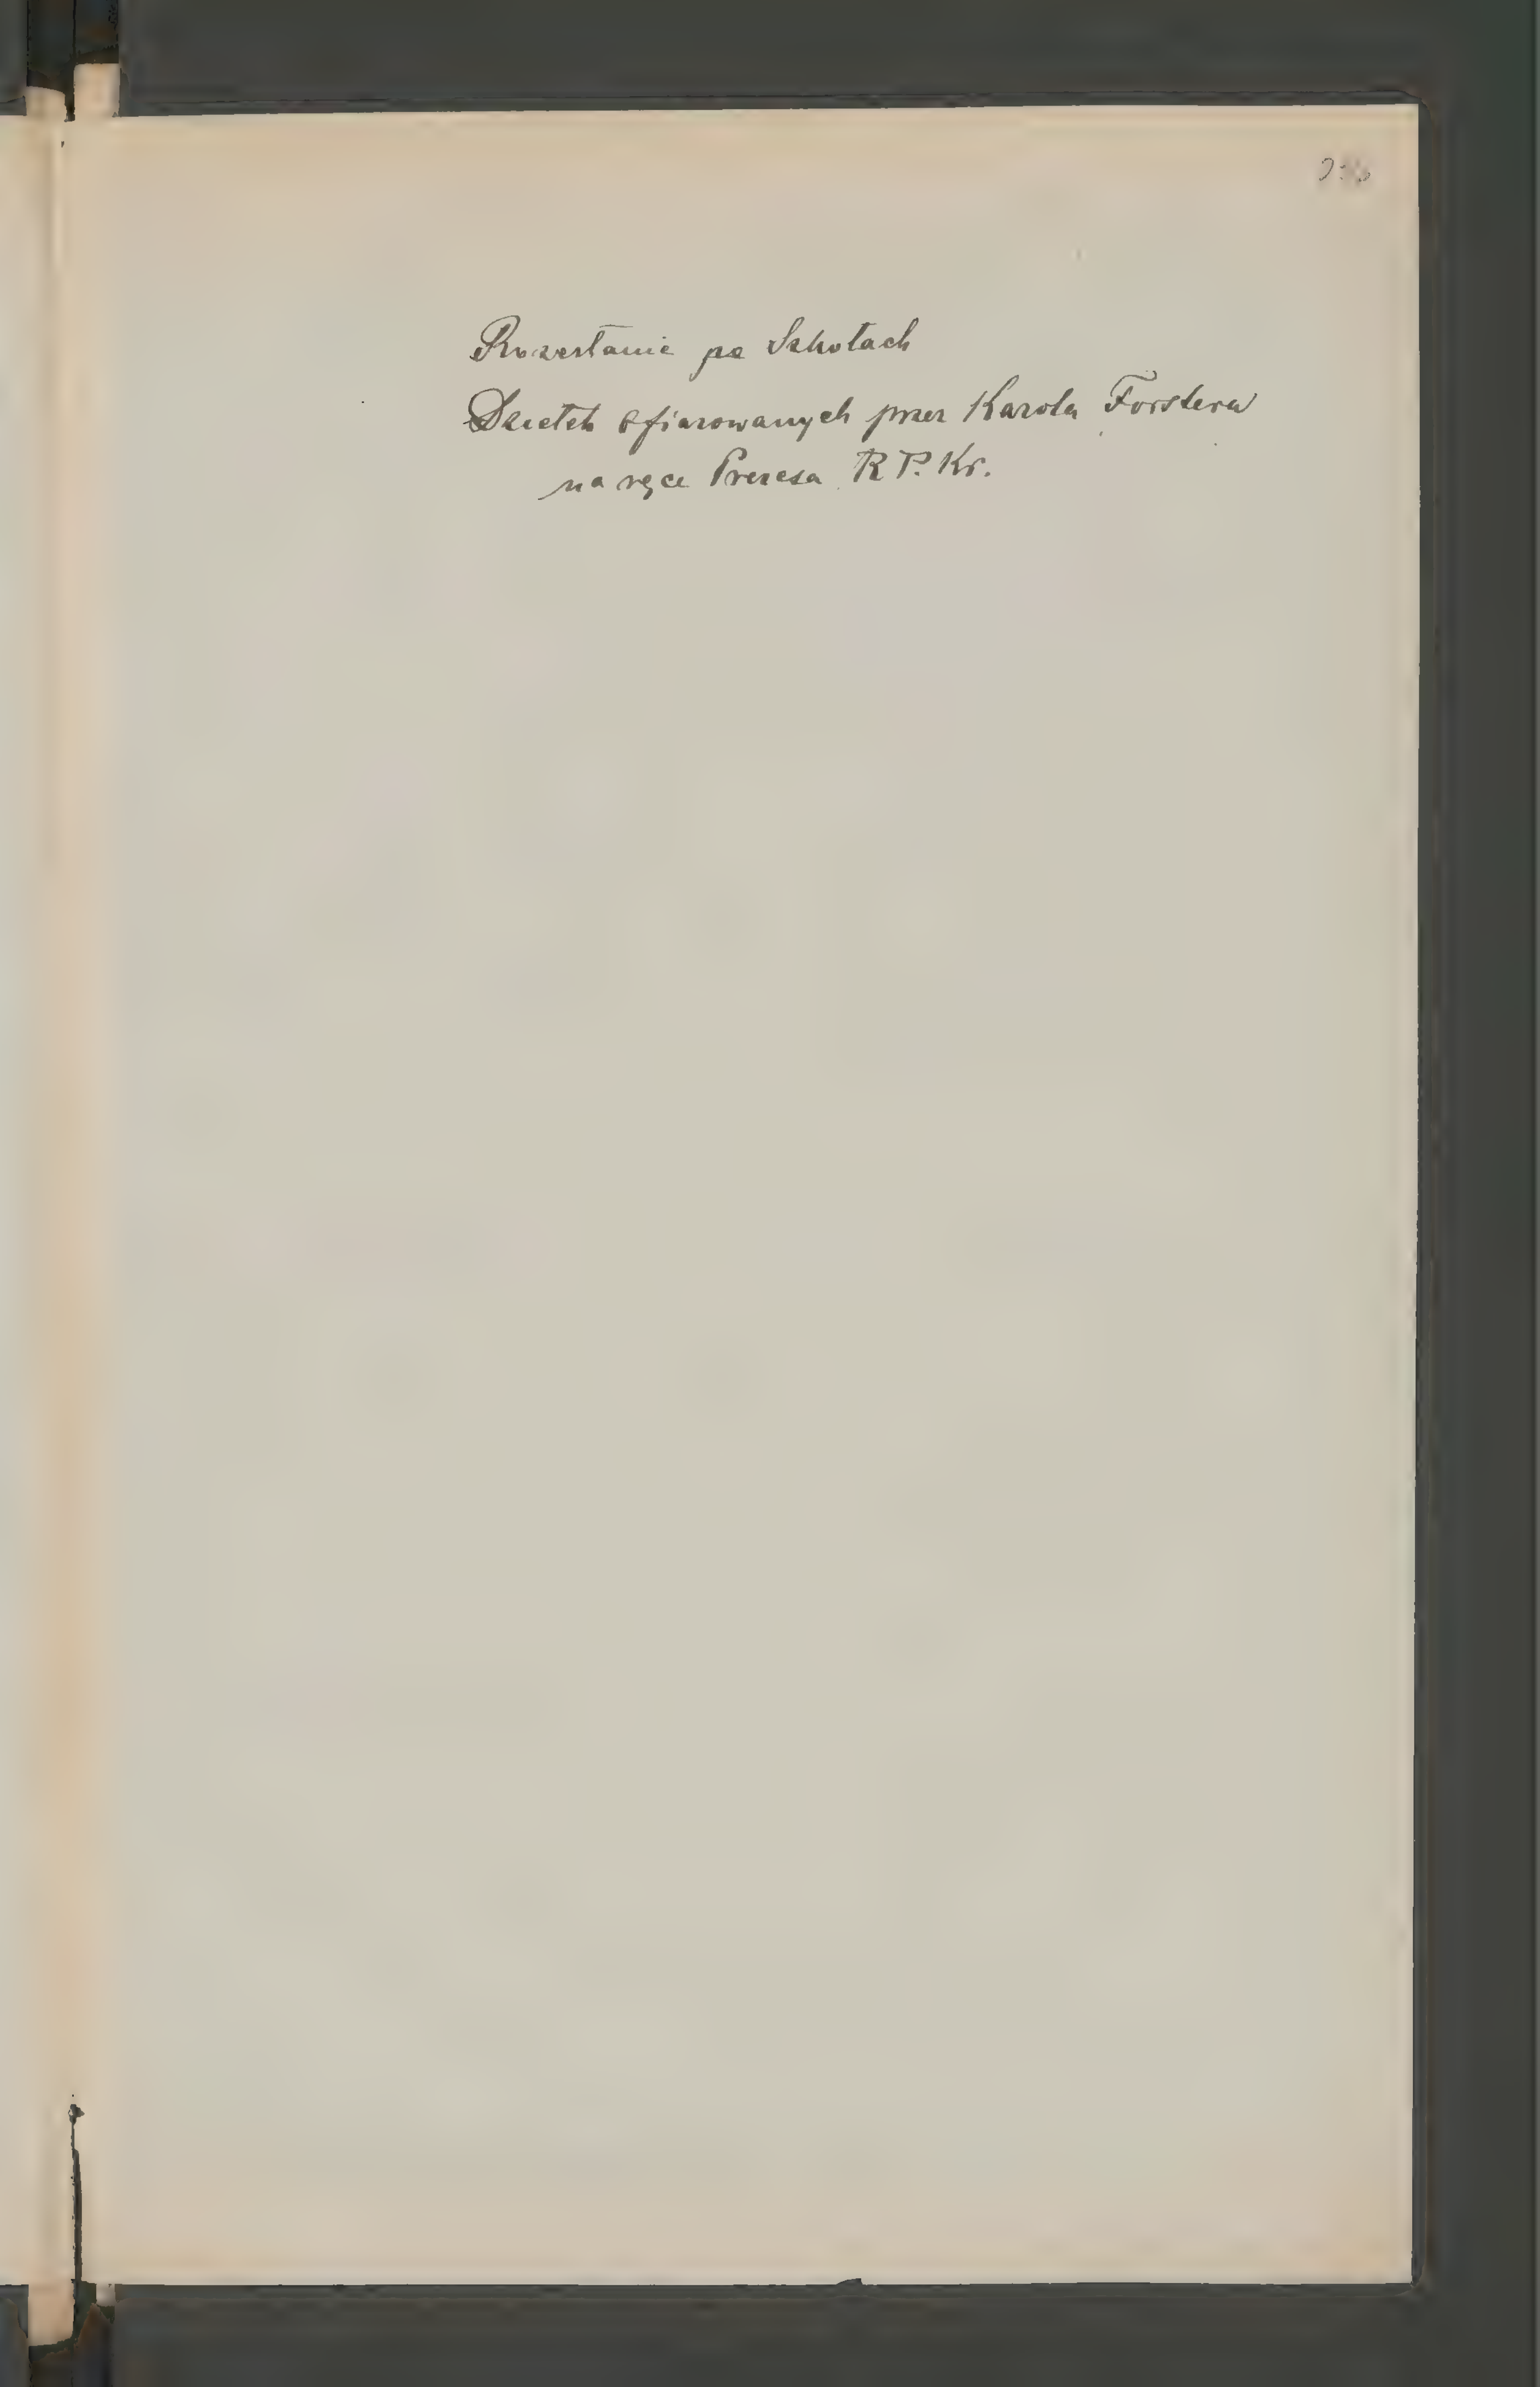 Rozesłanie po Szkołach
Dziełek ofiarowanych przez Karola Forstera
na ręce Prezesa R P. Kr.